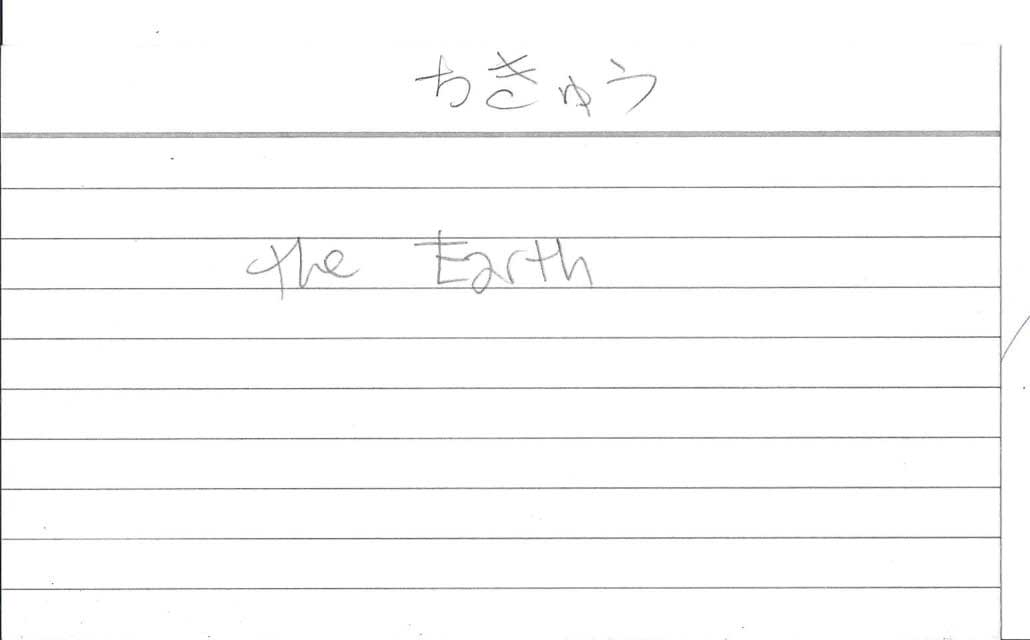 ちきゅう
the Earth